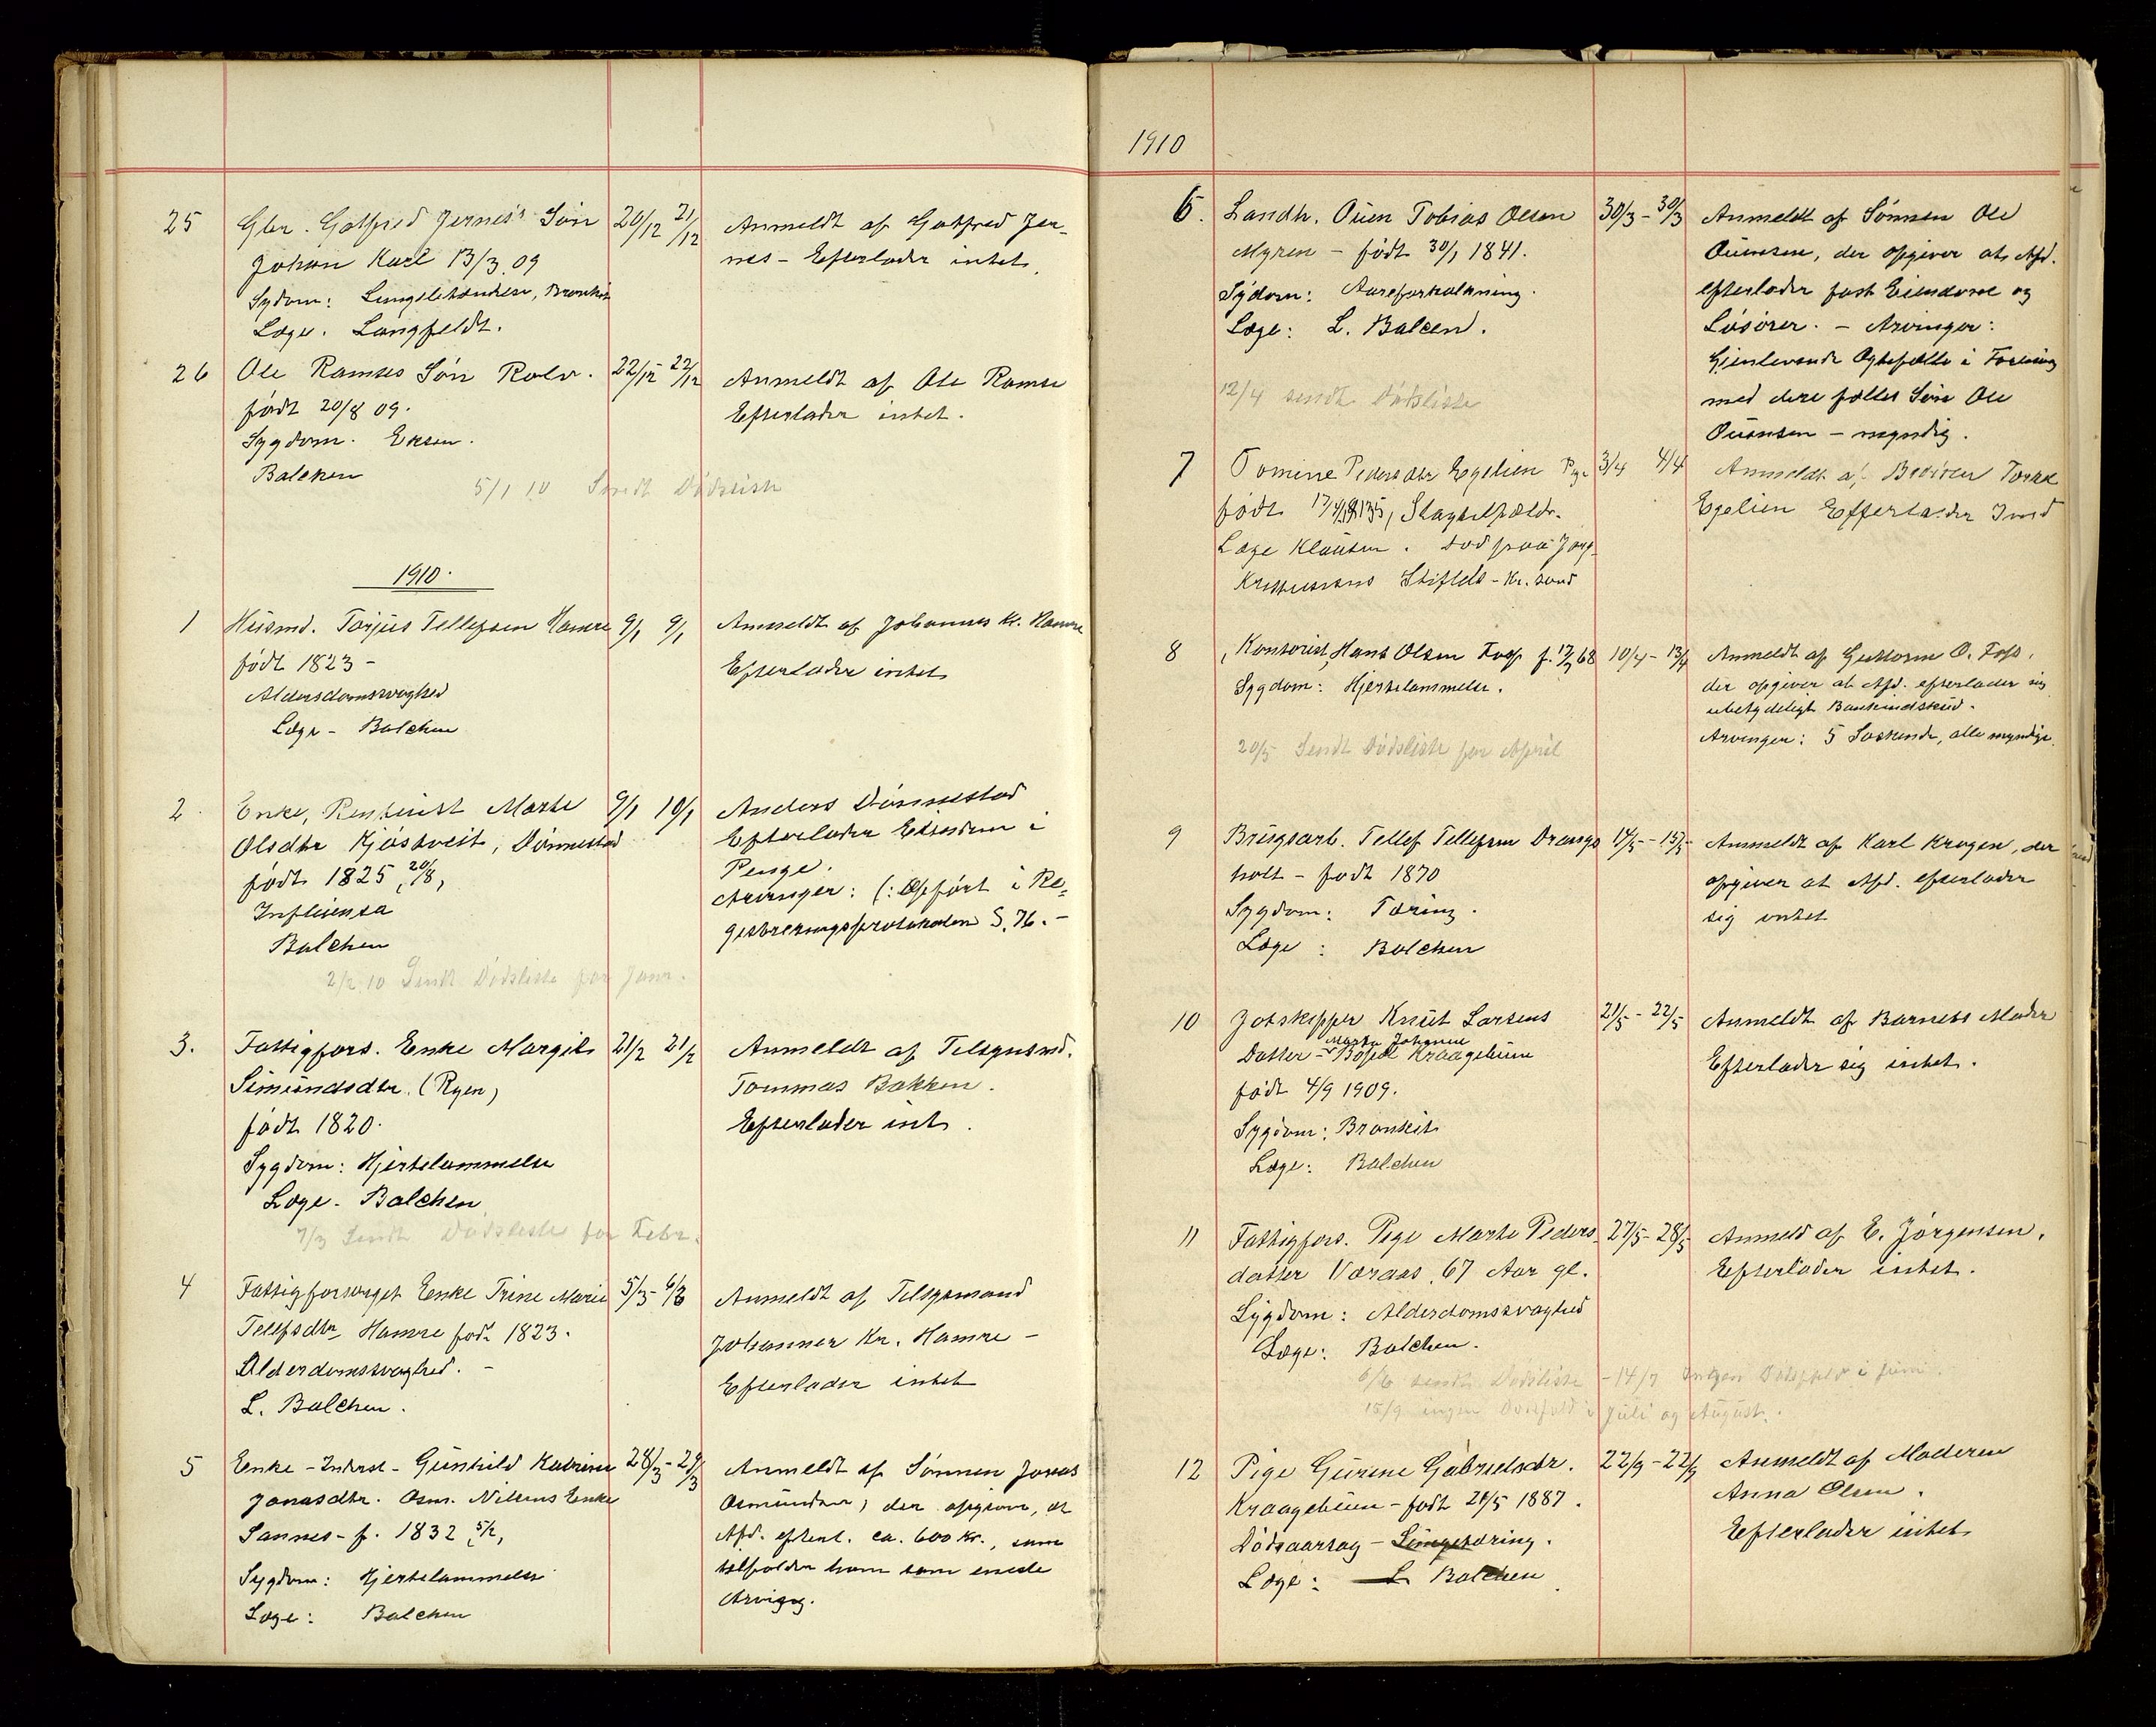 25 Gbr. Gotfred Jernes's Søn 20/12 21/12 Anmeldt af Gotfred Jer-
Johan Karl 13/3 09 nes - Efterlader intet.
Sygdom: Lungebetændelse, Bronkit
Læge. Langfeldt.
26 Ole Ramses Søn Rolv. 22/12 22/12 Anmeldt af Ole Ramse
født 20/8 09. Efterlader intet.
Sygdom.
Balchen
5/1 10 Sendt Dødsliste
1910.
1 Husmd. Torjus Tellefsen Hamre 9/1 9/1 Anmeldt af Johannes Kr. Hamre
født 1823 - Efterlader intet
Alderdomssvaghed
Læge - Balchen
2 Enke, Marte 9/1 10/1 Anders Dønnestad
Olsdtr Kjøstveit, Dønnestad Efterlader Eiendom i
født 1825 20/8, Penge.
Influensa Arvinger: (: Opført i Re-
Balchen S. 76. -
2/2 10 Sendt Dødsliste for Janr.
3. Fattigfors. Enke Margit 21/2 21/2 Anmeldt af Tilsynsmd.
Simundsdtr. (Ryen) Tommas Bakken.
født 1820. Efterlader int.
Sygdom: Hjertelammelse
Læge - Balchen
7/3 Sendt Dødsliste for Febr.
4 Fattigforsørget Enke Trine Marie 5/3 - 6/3 Anmeldt af Tilsynsmand
Tellefsdtr Hamre født 1823. Johannes Kr. Hamre -
Alderdomssvaghed. - Efterlader intet
L. Balchen.
5 Enke - Inderst - Gunhild Katrine 28/3 - 29/3 Anmeldt af Sønnen Jonas
Jonasdtr. Osm. Nilsens Enke Osmundsen, der opgiver, at
Sannes - f. 1832 5/2, Afd. efterl. ca. 600 Kr., som
Sygdom: Hjertelammelse tilfalder ham som eneste
Læge: Balchen Arving.
1910
6. Landh. Ouen Tobias Olsen 30/3 - 30/3 Anmeldt af Sønnen Ole
Myren - født 30/1 1841. Ouensen, der opgiver at Afd.
Sydom: Aareforkalkning. efterlader fast Eiendom og
Læge: L. Balcen. Løsøre. - Arvinger:
Gjenlevende Ægtefælle i Forening
12/4 sendt Dødsliste med dere fælles Søn Ole
Ouensen - myndig.
7 Tomine Pedersdtr Egelien Pige 3/4 4/4 Anmeldt af Broren
født 1835, Egelien Efterlader Intet
Læge Klausen. Død paa
Stiftels - Kr. sand
8 Kontorist, Hans Olsen Foss f. 68 10/4 - 13/4 Anmeldt af Guttorm O. Foss,
Sygdom: Hjertelammelse. der opgiver at Afd. efterlader sig
ubetydeligt Bankindskud.
20/5 Sendt Dødsliste for April Arvinger: 5 Søskende, alle myndige.
9 Brugsarb. Tellef Tellefsen Drangs 14/5 - 15/5 Anmeldt af Karl Krogen, der
holt - født 1870 opgiver at Afd. efterlader
Sygdom: Tæring. sig intet
Læge: Balchen
10 Jgtskipper Knut Larsens 21/5 - 22/5 Anmeldt af Barnets Moder
Marta Johanne
Datter - Bojel Kraagebuen Efterlader sig intet.
født 4/9 1909.
Sygdom: Bronkit
Læge: Balchen
11 Fattigfors. Pige Marte Peders- 27/5 - 28/5 Anmeld af E. Jørgensen.
datter Væraas, 67 Aar gl. Efterlader intet.
Sygdom: Alderdomssvaghed
Læge: Balchen.
6/6 sendt Dødsliste - 14/7 Ingen Dødsfald i Juni.
15/9 ingen Dødsfald i Juli og August.
12 Pige Gurine Gabrielsdtr. 22/9 - 22/9 Anmeldt af Moderen
Kraagebuen - født 21/5 1887. Anna Olsen.
Dødsaarsag - Lungetæring. Efterlader intet
Læge: L Balchen